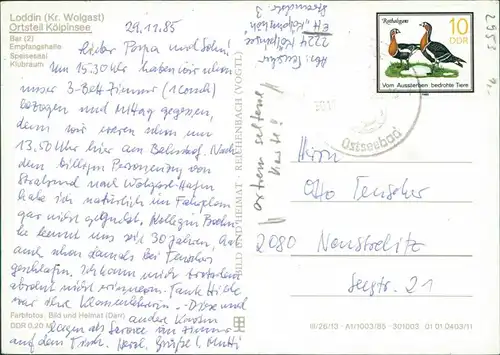 Loddin (Kr. Wolgast)
Ortsteil Kölpinsee
Bar (2)
Empfangshalle
Speisesaal
Klubraum
29.12.85
Lieber Papa und Sohn!
Um 15.30 Uhr haben wir schon
unser 3-Bett-Zimmer (1 Couch)
bezogen und Mittag gegessen,
denn wir waren schon um
13.50 Uhr hier am Bahnhof. Nach
dem billigen Personenzug von
Stralsund nach Wolgast-Hafen
habe ich natürlich im Fahrplan
gar nicht geguckt. Kollegin
kennt uns seit 30 Jahren, hat
auch schon damals bei Tenscher
geschlafen. Ich kann mich trotzdem
absolut nicht erinnern. Tante Hilde
war ihre Klassenlehrerin. - Diese und
andere Karten
lagen als Service im Zimmer
auf dem Tisch. Herzl. Grüße! Mutti
Farbfotos: Bild und Heimat (Darr)
DDR 0,20 M
BILD UND HEIMAT · REICHENBACH (VOGTL)
extrem seltene
Karte!
2224 Kölpinsee
EH "Kölpinshöh"
Rothalsgans
10
DDR
Vom Aussterben bedrohte Tiere
Ostseebad
Herrn
Otto Tenscher
2080 Neustrelitz
Seestr. 21
III/26/13 · A1/1003/85 · 301003 01 01 0403/11